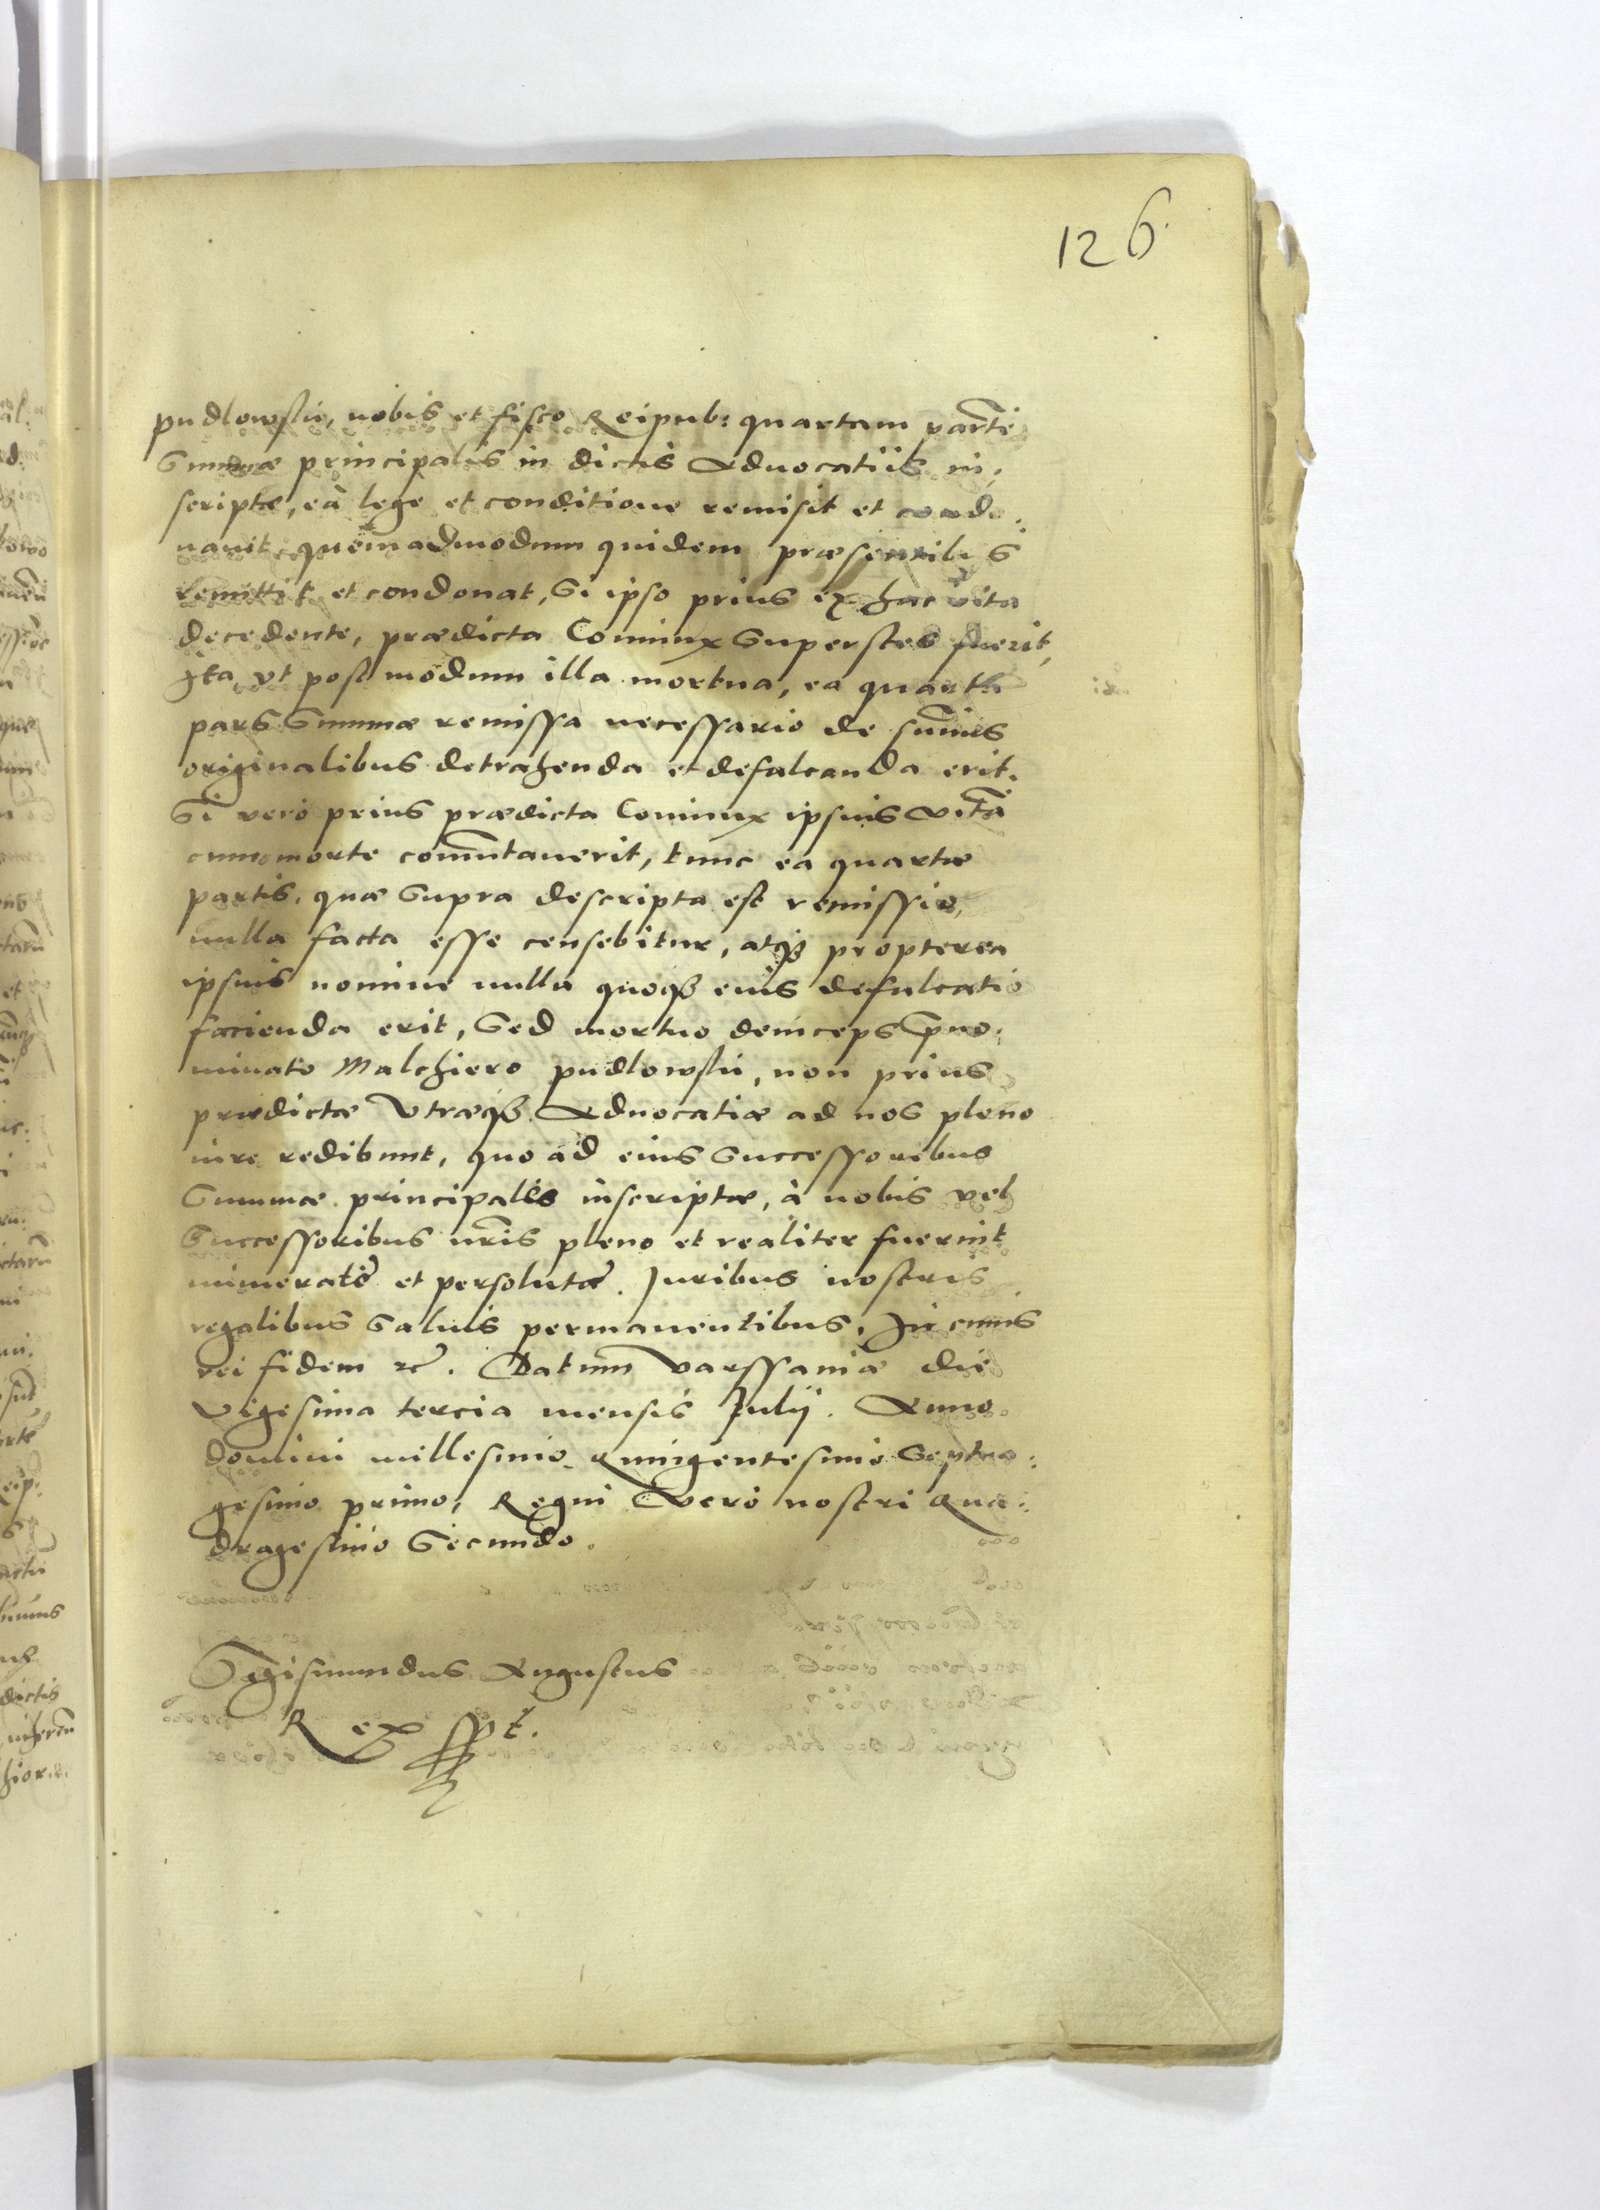 126
pudlowskii, nobis et fisco Reipub: quartam parte
Summæ principalis in dictis Advocatiis in,
scriptæ, eâ lege et conditione remisit et condo:
navit quemadmodum quidem præsentibus
remittit et condonat, Si ipso prius ex hac vita
decedente, prædicta Coniunx Superstes fuerit,
Ita vt postmodum illa mortua, ea quarta
pars Summæ remissa necessario de sum̃is
originalibus detrahenda et defalcanda erit.
Si vero prius prædicta Coniunx ipsius vitã
cum morte com̃utaverit, tunc ea quartæ
partis, quæ Supra descripta est remissio,
nulla facta esse censebitur, atqȝ propterea
ipsius nomine nulla quoqȝ eius defalcatio
facienda erit, Sed mortuo deinceps p̃no:
minato Malchiero pudlowskii, non prius
prædictæ vtræqȝ Advocatiæ ad nos pleno
iure redibunt, quo ad eius Successoribus
Summæ principales inscriptæ, à nobis vel
Successoribus nr̃is pleno et realiter fuerint
numeratæ et persolutæ. Juribus nostris
regalibus Saluis permanentibus, In cuius
rei fidem etc̃. Datum Varssaviæ die
vigesima tercia mensis Julij. Anno
domini millesimo Quingentesimo Septua:
gesimo primo, Regni vero nostri Qua:
dragesimo Secundo.
Sigismundus Augustus
Rex sspt.